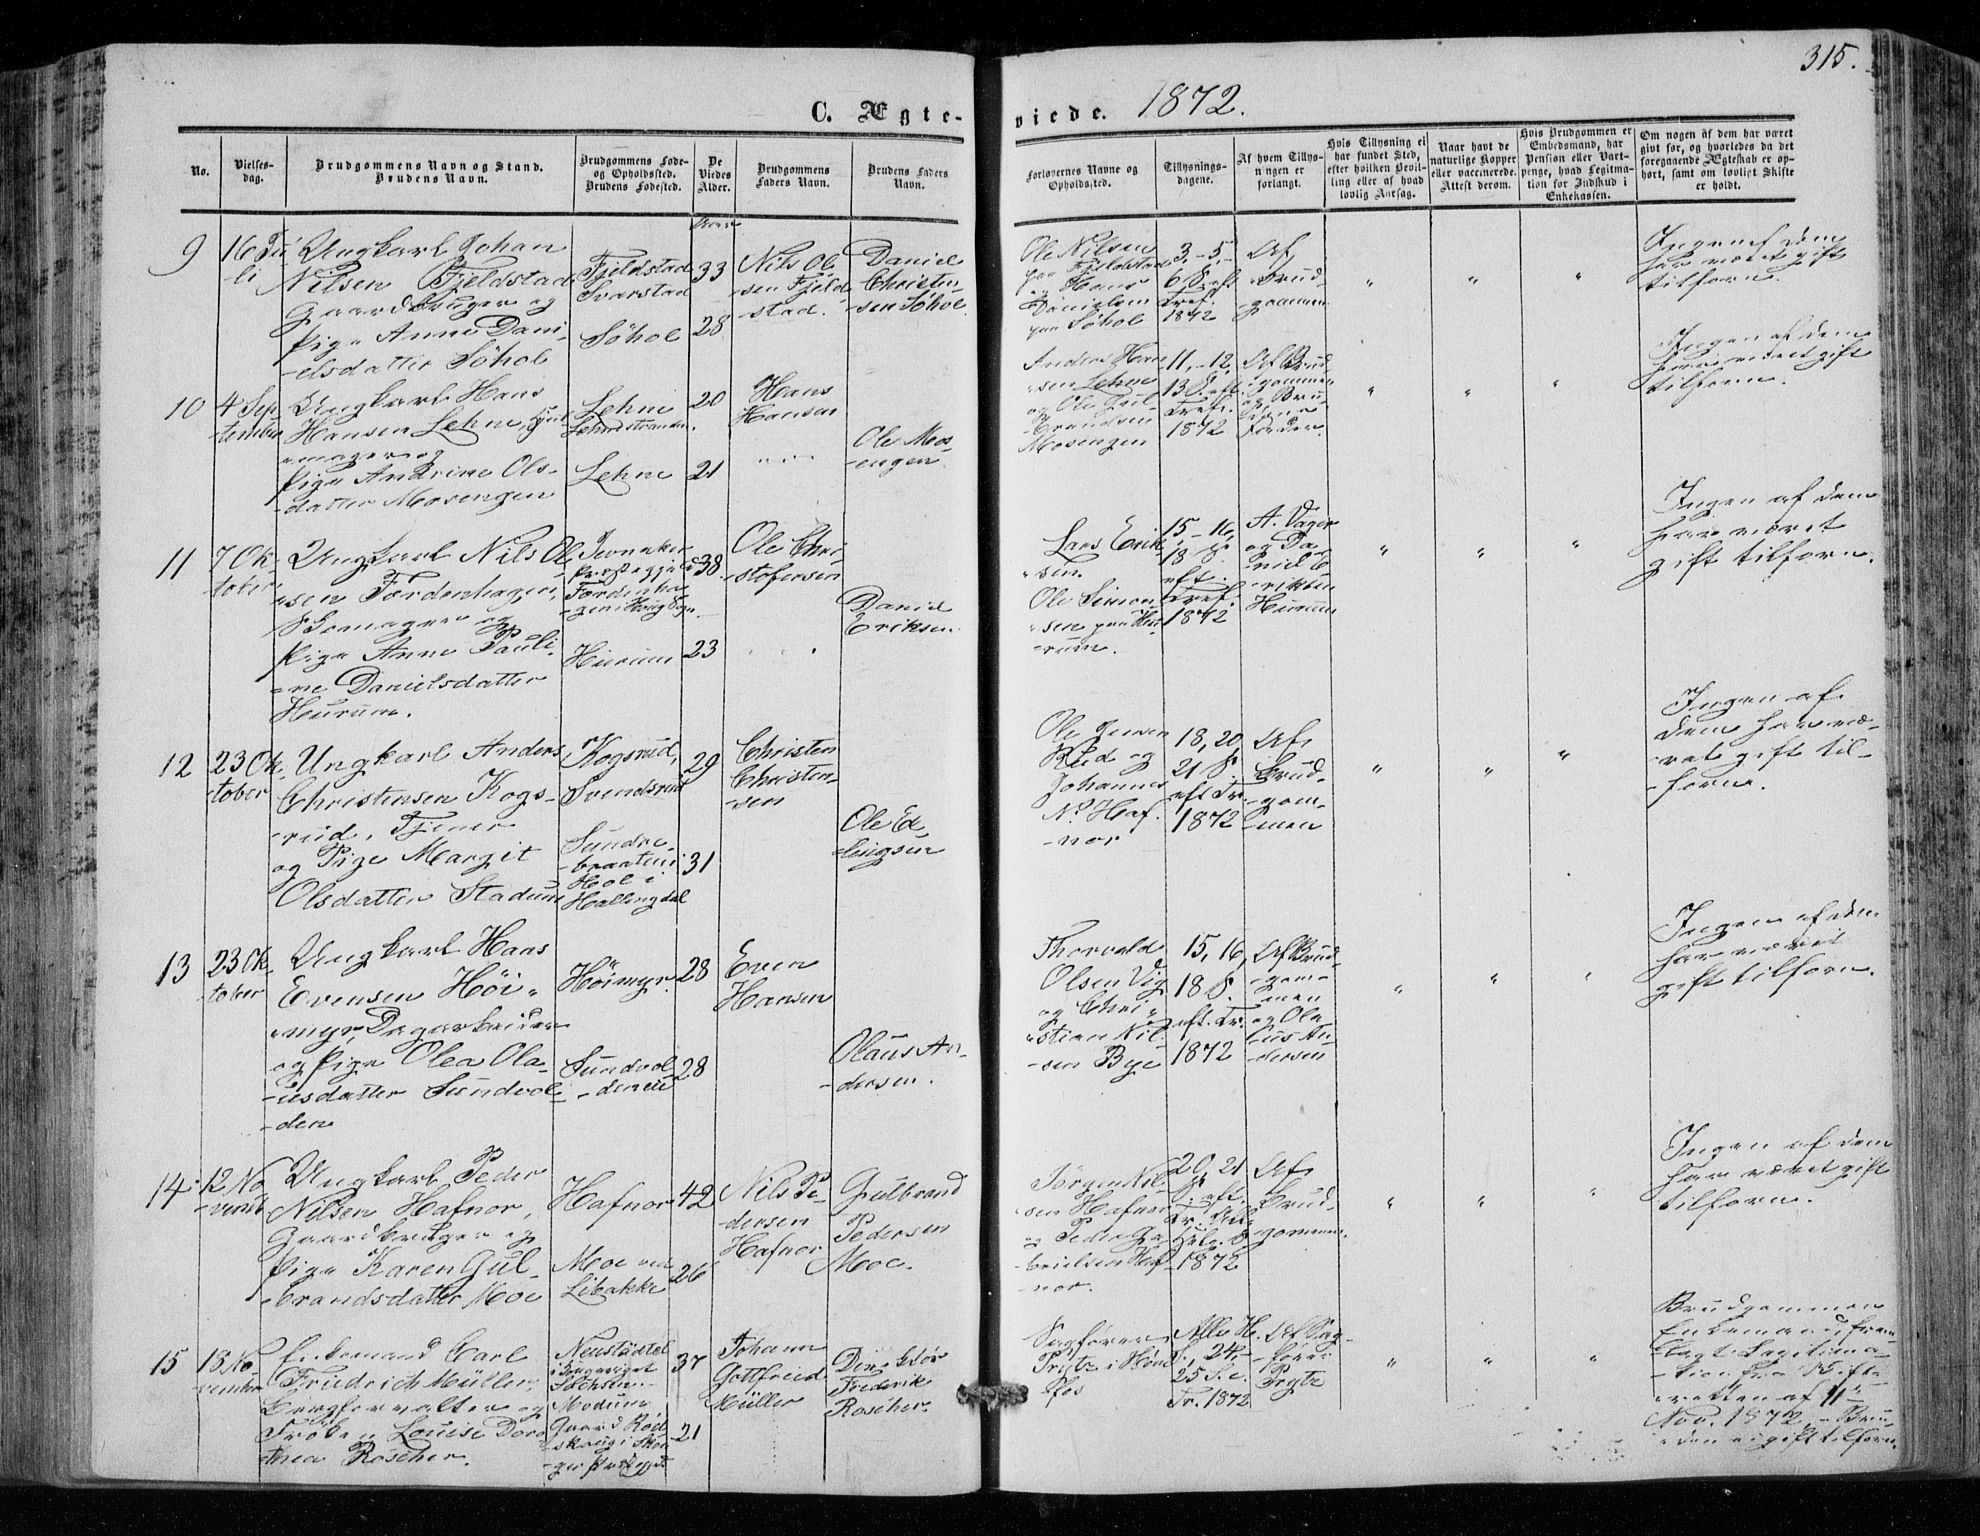 315.
C. Ægte- viede. 1872.
No.
Vielses-
dag.
Brudgommens Navn og Stand.
Brudens Navn.
Brudgommens Føde-
og Opholdssted.
Brudens Fødested.
De
Viedes
Alder.
Brudgommens
Faders Navn.
Brudens Faders
Navn.
Forlovernes Navne og
Opholdssted.
Tillysnings-
dagene.
Af hvem Tillys-
ningen er
forlangt.
Hvis Tillysning ei
har fundet Sted,
efter hvilken Bevil-
ling eller af hvad
lovlig Aarsag.
Naar havt de
naturlige Kopper
eller vaccinerede.
Attest derom.
Hvis Brudgommen er
Embedsmand, har
Pension eller Vart-
penge, hvad Legitima-
tion for Indskud i
Enkekassen.
Om nogen af dem har været
givt før, og hvorledes da det
foregaaende Ægteskab er op-
hørt, samt om lovligt Skifte
er holdt.
9
16 Ju-
li
Ungkarl Johan
Nilsen Fjeldstad
Gaardbruger og
Pige Anne Dani-
elsdatter Søhol
Fjeldstad
Svarstad
Søhol
33
28
Nils Ol-
sen Fjeld-
stad.
Daniel
Christen-
sen Søhol
Ole Nilsen
paa Fjeldstad
og Hans
Danielsen
paa Søhol
3, 5,
6 S. eft
Tref.
1872
Af
Brud-
gommen
" " "
Ingen af dem
har været gift
tilforn.
10
4 Sep-
tember
Ungkarl Hans
Hansen Lehne, Hjul-
mager og
Pige Andrine Ols-
datter Mosengen
Lehne
Lehnestranden.
Lehne
20
21
Hans
Hansen
Ole Mos-
engen.
Anders Han-
sen Lehne
og Ole Gul-
brandsen
Mosengen
11, 12,
13 S. eft.
Tref.
1872
Af Brud-
gommen
og Bru-
dens
Fader.
" " "
Ingen af dem
har været gift
tilforn.
11
7 Ok-
tober
Ungkarl Nils Ol-
sen Fordenhagen,
Skomager og
Pige Anne Pauli-
ne Danielsdatter
Hurum.
Jevnaker
Præstegjeld
Fordenha-
gen i Houg Sogn
Hurum
38
23
Ole Chri-
stofersen
Daniel
Eriksen
Lars Erik-
sen.
Ole Simon-
sen paa Hu-
rum.
15, 16,
18 S.
eft.
Tref.
1872
A. Vager
og Da-
niel E-
riksen
Hurum
" " "
Ingen af dem
har været
gift tilforn.
12
23 Ok-
tober
Ungkarl Anders
Christensen Kogs-
rud, Tjener
og Pige Margit
Olsdatter Stadum
Kogsrud,
Svendsrud
Sundre-
braaten i
Hol i
Hallingdal
29
31
Christen
Christen-
sen
Ole Ed-
lingsen
Ole Jensen
Rud og
Johannes
N. Haf-
nor
18, 20,
21 S.
eft Tr.
1872
Af
Brud-
gom-
men
" " "
Ingen af
dem har væ-
ret gift til-
forn.
13
23 Ok-
tober
Ungkarl Hans
Evensen Høi-
myr, Dagarbeider
og Pige Olea Ola-
usdatter Sundvol-
den
Høimyr.
Sundvol-
denei
28
28
Even
Hansen
Olaus An-
dersen.
Thorvald
Olsen Vig
og Chri-
stian Nil-
sen Bye
15, 16,
18 S.
eft. Tr.
1872
Af Brud-
gom-
men
og Ola-
us An-
dersen
" " "
Ingen af dem
har været
gift tilforn.
14
12 No-
vemb
Ungkarl Peder
Nilsen Hafnor,
Gaardbruger og
Pige Karen Gul-
brandsdatter Moe
Hafnor
Moe ved
Libakke
42
26
Nils Pe-
dersen
Hafnor
Gulbrand
Pedersen
Moe.
Jørgen Nil-
sen Hafnor
og Peder Ga-
brielsen Haf-
nor.
20, 21
S. eft.
Tr. Alle
Helg. S
1872
Af
Brud-
gommen.
" " "
Ingen af dem
har været gift
tilforn.
15
18 No-
vember
Enkemand Carl
Friedrich Müller,
Bergforvalter og
Frøken Louise Doro-
thea Roscher.
Neustädtel
i Kongeriget
Sachsen.
Modum
Gaard Rød-
skoug i Skou-
ger Prstgjd.
37
21
Johann
Gottfried
Müller
Direktør
Frederik
Roscher.
Sagfører
Prytz i Høne-
fos
Alle H.
S., 24,
25 S. e.
Tr. 1872
Af Sag-
fører
Prytz
" " "
Brudgommen
Enkemand, frem-
lagt Legitima-
tion fra Skifte-
retten af 11te
Nov. 1872, - Bru-
den ei gift tilforn.